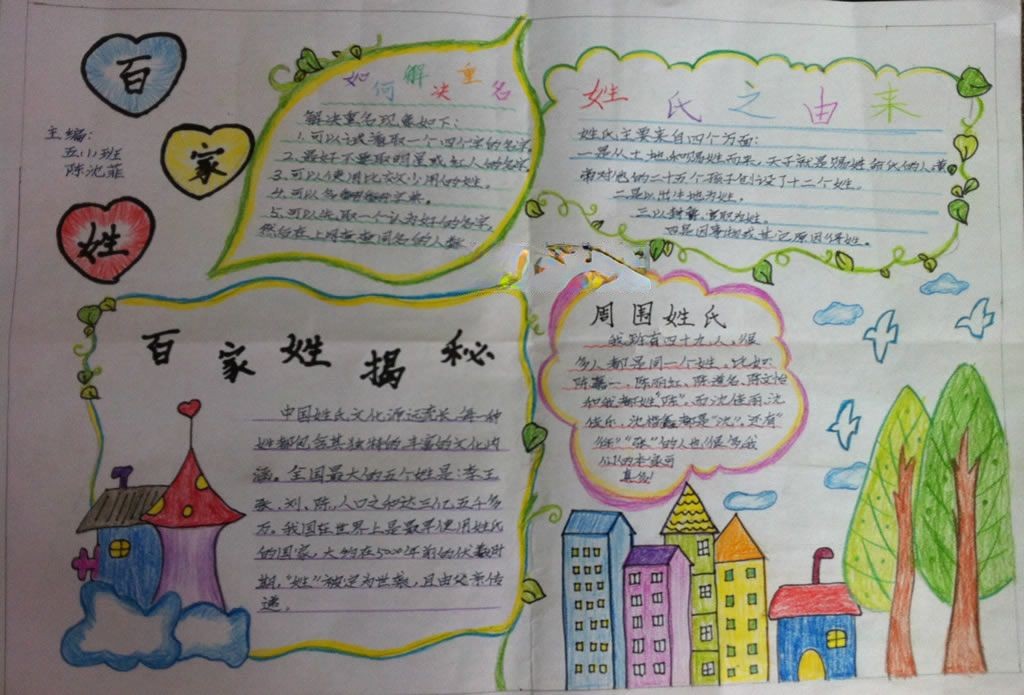 百
家
姓
主编:
五(1)班
陈沈菲
如何解决重名
解决重名现象如下:
1.可以试着取一个四个字的名字。
2.最好不要取明星或红人的名字
3.可以使用比较少用的姓。
4.可以多
5.可以先取一个认为好的名字,
然后在上网查查同名的人数
姓氏之由来
姓氏主要来自四个方面:
一是从土地和赐姓而来,天子就是赐姓命氏的人,黄
帝对他的二十五个孩子创设了十二个姓。
二是以出生地为姓。
三以封爵、官职为姓。
四是因事物或其它原因得姓。
百家姓揭秘
中国姓氏文化源远流长,每一种
姓都包含其独特的丰富的文化内
涵。全国最大的五个姓是:李、王、
张、刘、陈,人口之和达三亿五千多
万。我国在世界上是最早使用姓氏
的国家,大约在5000年前的伏羲时
期,“姓”被定为世袭,且由父亲传
递。
周围姓氏
我班有四十九人,很
多人都是同一个姓。比如
陈嘉一,陈丽虹、陈
和我都姓“陈”。而沈佳丽,沈
佳乐,沈楷鑫都是“沈”。还有
“张”的人也很多我
们的
真多!